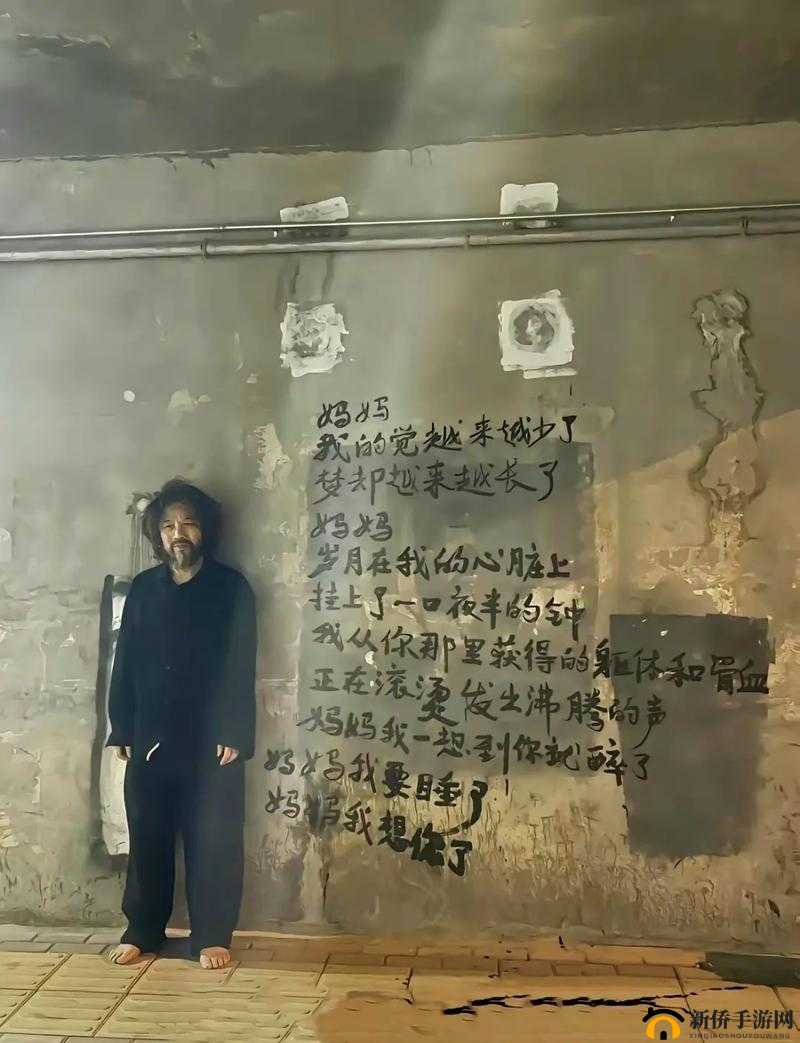 妈妈
我的觉越来越少了
梦却越来越长了
妈妈
岁月在我的心脏上
挂上了一口夜半的钟
我从你那里获得的躯体和骨血
正在滚烫发出沸腾的声
妈妈我一想到你就醉了
妈妈我要睡了
妈妈我想你了
新侨手游网
XINQIAOSHOUYOUWANG